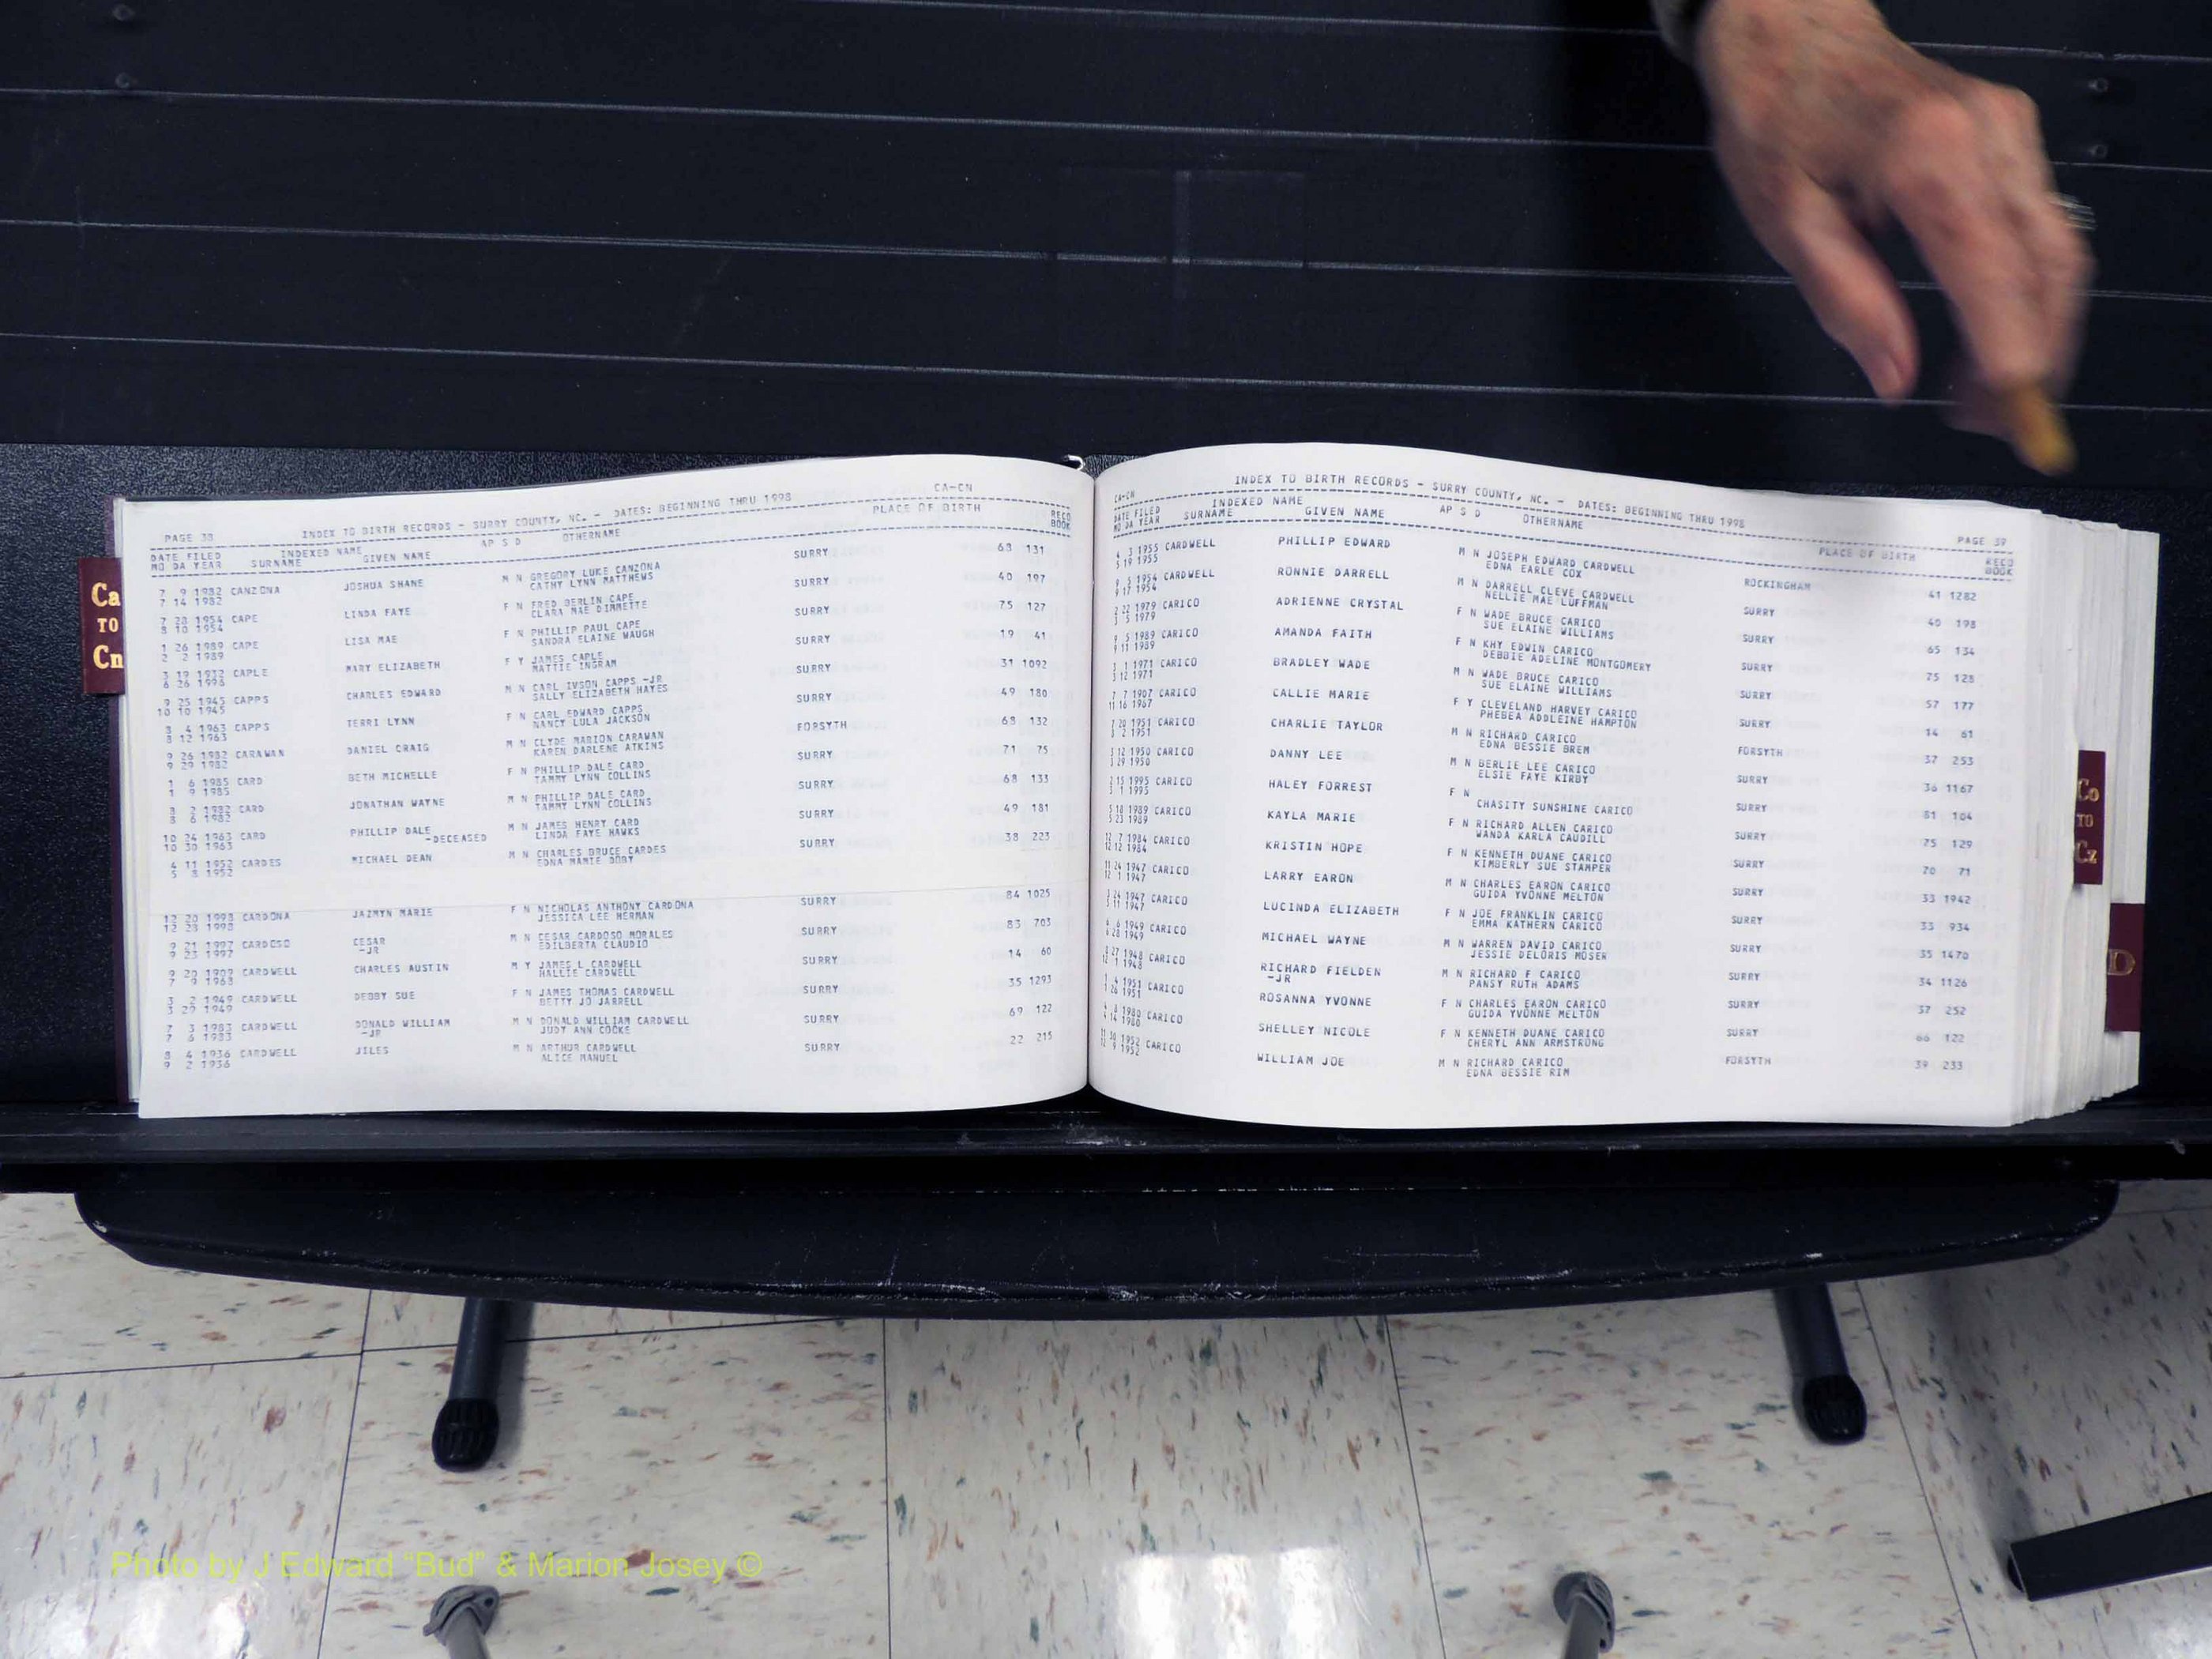 PAGE 38 INDEX TO BIRTH RECORDS - SURRY COUNTY, NC. - DATES: BEGINNING THRU 1998 CA-CN
DATE FILED INDEXED NAME AP S D OTHERNAME PLACE OF BIRTH RECO
MO DA YEAR SURNAME GIVEN NAME BOOK
7 9 1982 CANZONA JOSHUA SHANE M N GREGORY LUKE CANZONA SURRY 68 131
7 14 1982 CATHY LYNN MATTHEWS
7 28 1954 CAPE LINDA FAYE F N FRED BERLIN CAPE SURRY 40 197
8 10 1954 CLARA MAE DIMMETTE
1 26 1989 CAPE LISA MAE F N PHILLIP PAUL CAPE SURRY 75 127
2 2 1989 SANDRA ELAINE WAUGH
3 19 1932 CAPLE MARY ELIZABETH F Y JAMES CAPLE SURRY 19 41
6 26 1998 MATTIE INGRAM
9 25 1945 CAPPS CHARLES EDWARD M N CARL IVSON CAPPS -JR SURRY 31 1092
10 10 1945 SALLY ELIZABETH HAYES
8 4 1963 CAPPS TERRI LYNN F N CARL EDWARD CAPPS SURRY 49 180
8 12 1963 NANCY LULA JACKSON
9 26 1982 CARAWAN DANIEL CRAIG M N CLYDE MARION CARAWAN FORSYTH 68 132
9 29 1982 KAREN DARLENE ATKINS
1 6 1985 CARD BETH MICHELLE F N PHILLIP DALE CARD SURRY 71 75
1 9 1985 TAMMY LYNN COLLINS
8 2 1982 CARD JONATHAN WAYNE M N PHILLIP DALE CARD SURRY 68 133
8 6 1982 TAMMY LYNN COLLINS
10 24 1963 CARD PHILLIP DALE M N JAMES HENRY CARD SURRY 49 181
10 30 1963 -DECEASED LINDA FAYE HAWKS
4 11 1952 CARDES MICHAEL DEAN M N CHARLES BRUCE CARDES SURRY 38 223
5 8 1952 EDNA MARIE BOBY
12 20 1998 CARDONA JAZMYN MARIE F N NICHOLAS ANTHONY CARDONA SURRY 84 1025
12 28 1998 JESSICA LEE HERMAN
9 21 1997 CARDOSO CESAR M N CESAR CARDOSO MORALES SURRY 83 703
9 23 1997 -JR EDILBERTA CLAUDIO
9 20 1909 CARDWELL CHARLES AUSTIN M Y JAMES L CARDWELL SURRY 14 60
7 9 1963 HALLIE CARDWELL
3 2 1949 CARDWELL DEBBY SUE F N JAMES THOMAS CARDWELL SURRY 35 1293
3 29 1949 BETTY JO JARRELL
7 3 1983 CARDWELL DONALD WILLIAM M N DONALD WILLIAM CARDWELL SURRY 69 122
7 6 1983 -JR JUDY ANN COOKE
8 4 1936 CARDWELL JILES M N ARTHUR CARDWELL SURRY 22 215
9 2 1936 ALICE MANUEL
CA-CN INDEX TO BIRTH RECORDS - SURRY COUNTY, NC. - DATES: BEGINNING THRU 1998 PAGE 39
DATE FILED INDEXED NAME AP S D OTHERNAME PLACE OF BIRTH RECO
MO DA YEAR SURNAME GIVEN NAME BOOK
4 3 1955 CARDWELL PHILLIP EDWARD M N JOSEPH EDWARD CARDWELL ROCKINGHAM 41 1282
5 19 1955 EDNA EARLE COX
9 5 1954 CARDWELL RONNIE DARRELL M N DARRELL CLEVE CARDWELL SURRY 40 198
9 17 1954 NELLIE MAE LUFFMAN
2 22 1979 CARICO ADRIENNE CRYSTAL F N WADE BRUCE CARICO SURRY 65 134
3 5 1979 SUE ELAINE WILLIAMS
9 5 1989 CARICO AMANDA FAITH F N KHY EDWIN CARICO SURRY 75 128
9 11 1989 DEBBIE ADELINE MONTGOMERY
3 1 1971 CARICO BRADLEY WADE M N WADE BRUCE CARICO SURRY 57 177
3 12 1971 SUE ELAINE WILLIAMS
7 7 1907 CARICO CALLIE MARIE F Y CLEVELAND HARVEY CARICO SURRY 14 61
11 16 1967 PHEBEA ADDLEINE HAMPTON
20 1951 CARICO CHARLIE TAYLOR M N RICHARD CARICO FORSYTH 37 253
2 1951 EDNA BESSIE BREM
12 1950 CARICO DANNY LEE M N BERLIE LEE CARICO SURRY 36 1167
29 1950 ELSIE FAYE KIRBY
2 15 1995 CARICO HALEY FORREST F N SURRY 81 104
3 1 1995 CHASITY SUNSHINE CARICO
5 18 1989 CARICO KAYLA MARIE F N RICHARD ALLEN CARICO SURRY 75 129
5 23 1989 WANDA KARLA CAUDILL
12 7 1984 CARICO KRISTIN HOPE F N KENNETH DUANE CARICO SURRY 70 71
12 12 1984 KIMBERLY SUE STAMPER
11 24 1947 CARICO LARRY EARON M N CHARLES EARON CARICO SURRY 33 1942
12 1 1947 GUIDA YVONNE MELTON
24 1947 CARICO LUCINDA ELIZABETH F N JOE FRANKLIN CARICO SURRY 33 934
11 1947 EMMA KATHERN CARICO
6 1949 CARICO MICHAEL WAYNE M N WARREN DAVID CARICO SURRY 35 1470
28 1949 JESSIE DELORIS MOSER
27 1948 CARICO RICHARD FIELDEN M N RICHARD F CARICO SURRY 34 1126
1 1948 -JR PANSY RUTH ADAMS
4 1951 CARICO ROSANNA YVONNE F N CHARLES EARON CARICO SURRY 37 252
26 1951 GUIDA YVONNE MELTON
4 8 1980 CARICO SHELLEY NICOLE F N KENNETH DUANE CARICO SURRY 66 122
4 14 1980 CHERYL ANN ARMSTRONG
11 30 1952 CARICO WILLIAM JOE M N RICHARD CARICO FORSYTH 39 233
12 9 1952 EDNA BESSIE RIM
Ca
TO
Cn
Co
TO
Cz
D
Photo by J Edward “Bud” & Marion Josey ©